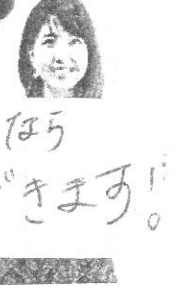 なら
できます!。